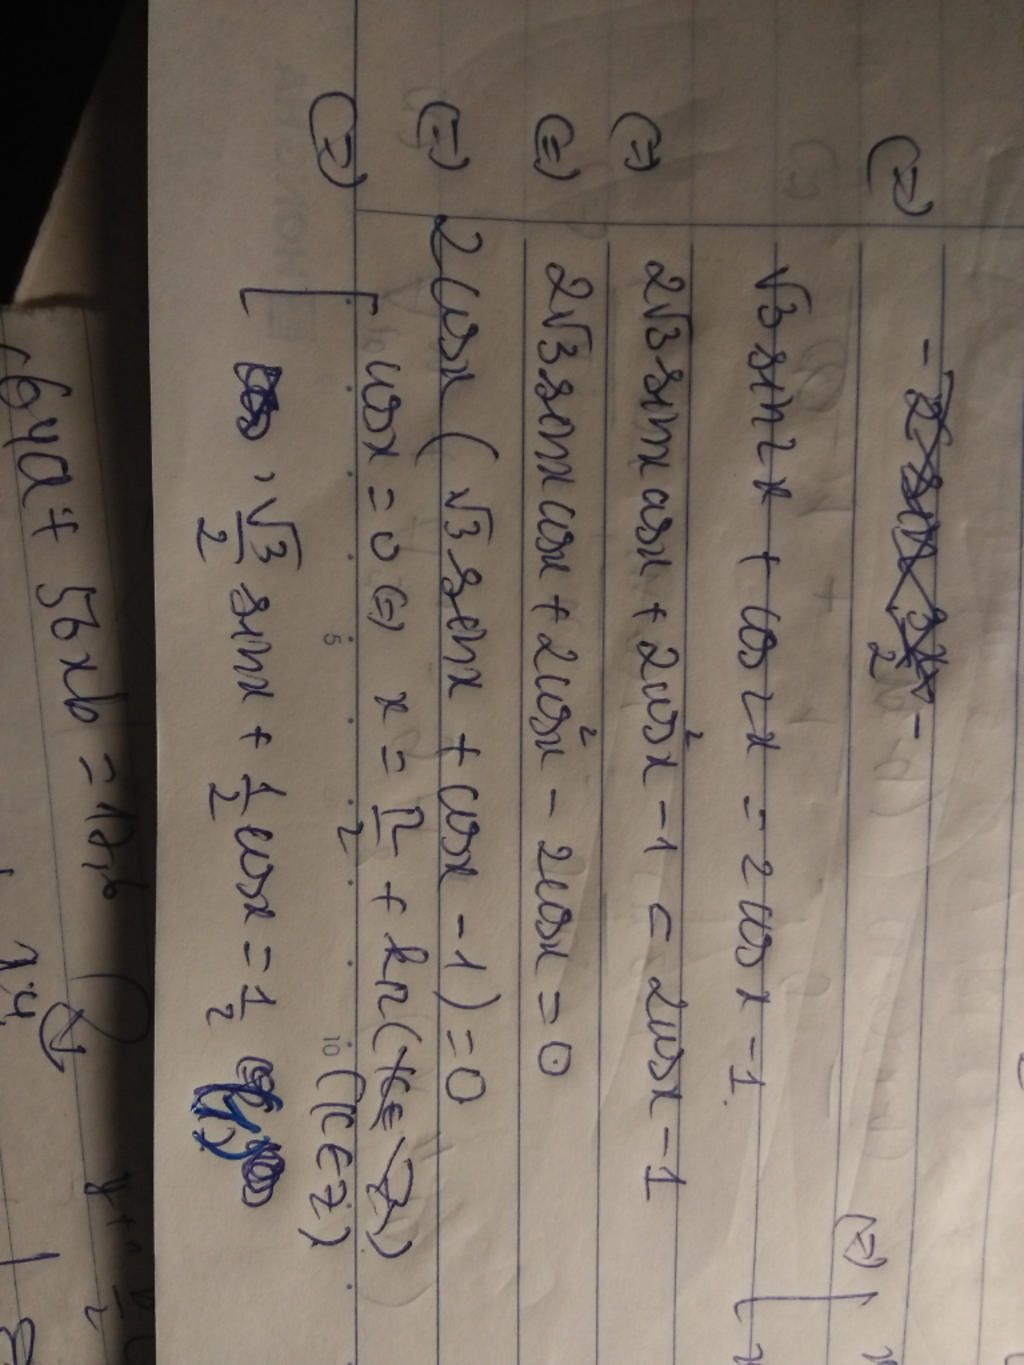 (=)
√3 sin2x + cos2x = 2cosx -1.
(=) 2√3 sinx cosx + 2cos²x - 1 = 2cosx - 1
(=) 2√3 sinx cosx + 2cos²x - 2cosx = 0
(=) 2cosx ( √3 sinx + cosx - 1) = 0
(=) [ cosx = 0 (=) x = π/2 + kπ (k∈Z)
(k∈Z)
√3/2 sinx + 1/2 cosx = 1/2
5
10
64a + 56xb = 17,6